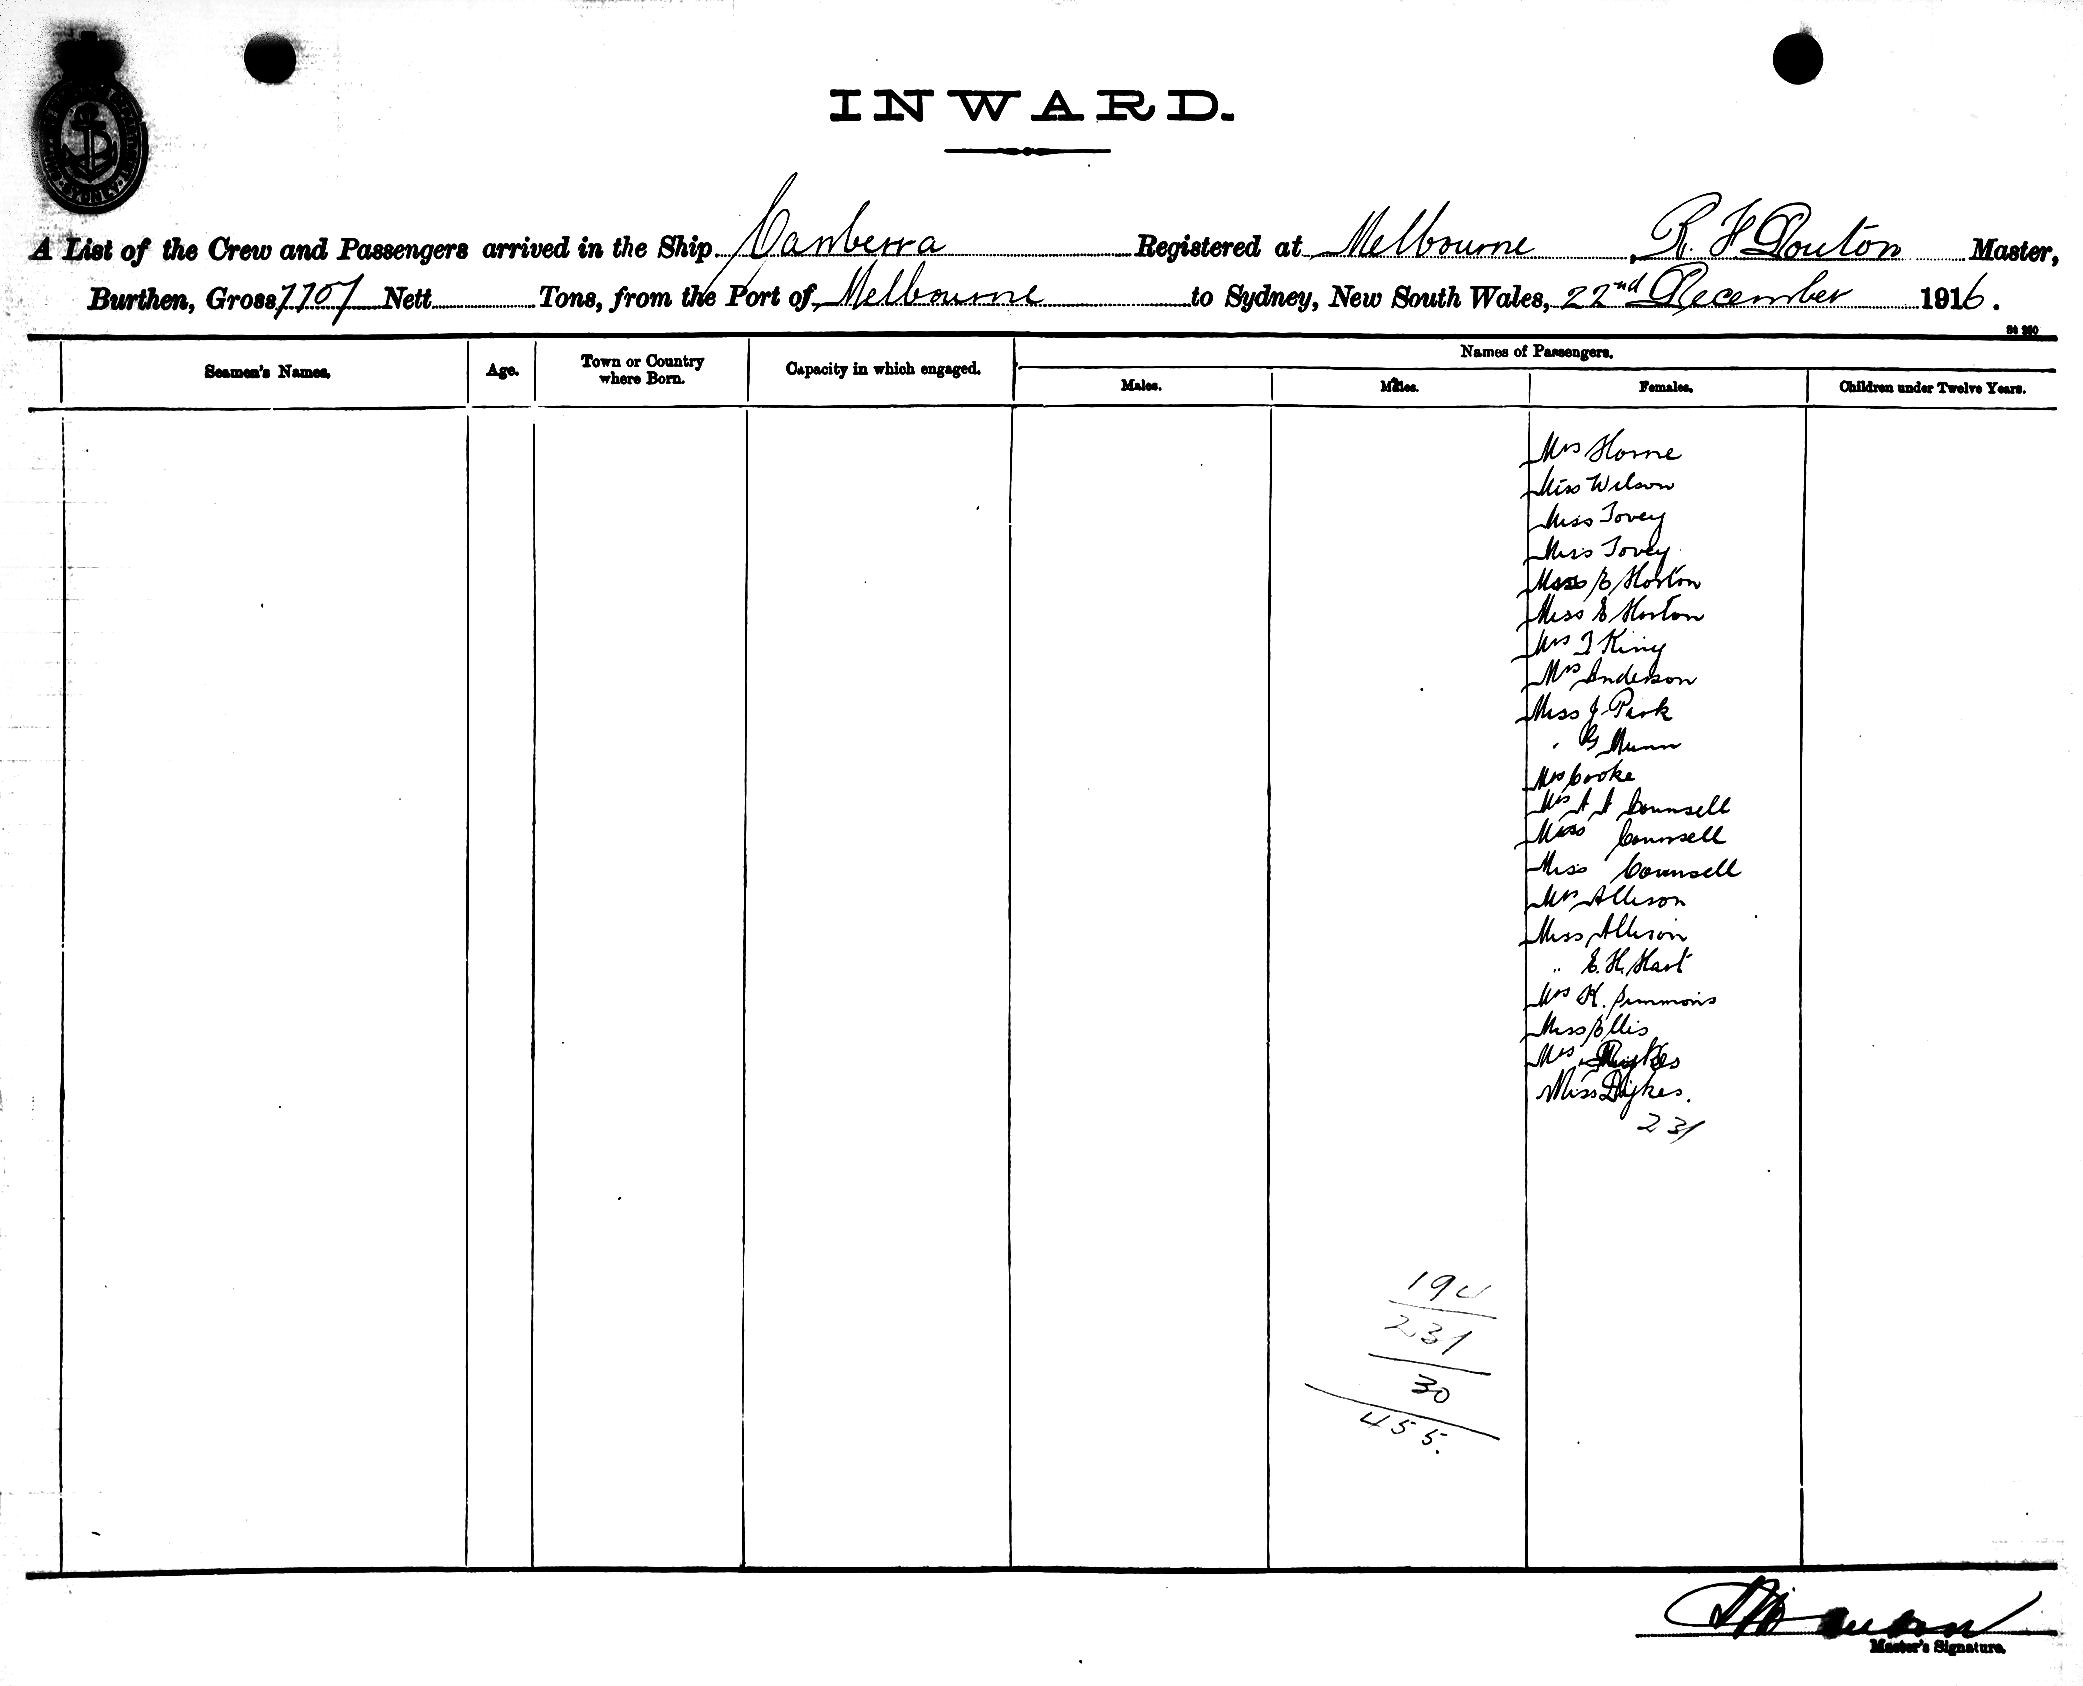 INWARD.
A List of the Crew and Passengers arrived in the Ship Canberra Registered at Melbourne, R. H Douton Master,
Burthen, Gross 7707 Nett Tons, from the Port of Melbourne to Sydney, New South Wales, 22nd December 1916.
Names of Passengers.
Seamen's Names. Age. Town or Country where Born. Capacity in which engaged. Males. Males. Females. Children under Twelve Years.
Mrs Horne
Miss Wilson
Miss Tovey
Miss Tovey
E Horton
Miss E Horton
Mrs J King
Mrs Anderson
Miss J. Park
" G Munn
Mrs Cooke
Mrs A A Counsell
Miss Counsell
Miss Counsell
Mrs Allison
Miss Allison
" E. H. Hart
Mrs H. Simmons
Miss Ellis
Mrs
Miss Dykes.
231
194
231
30
455.
Master's Signature.